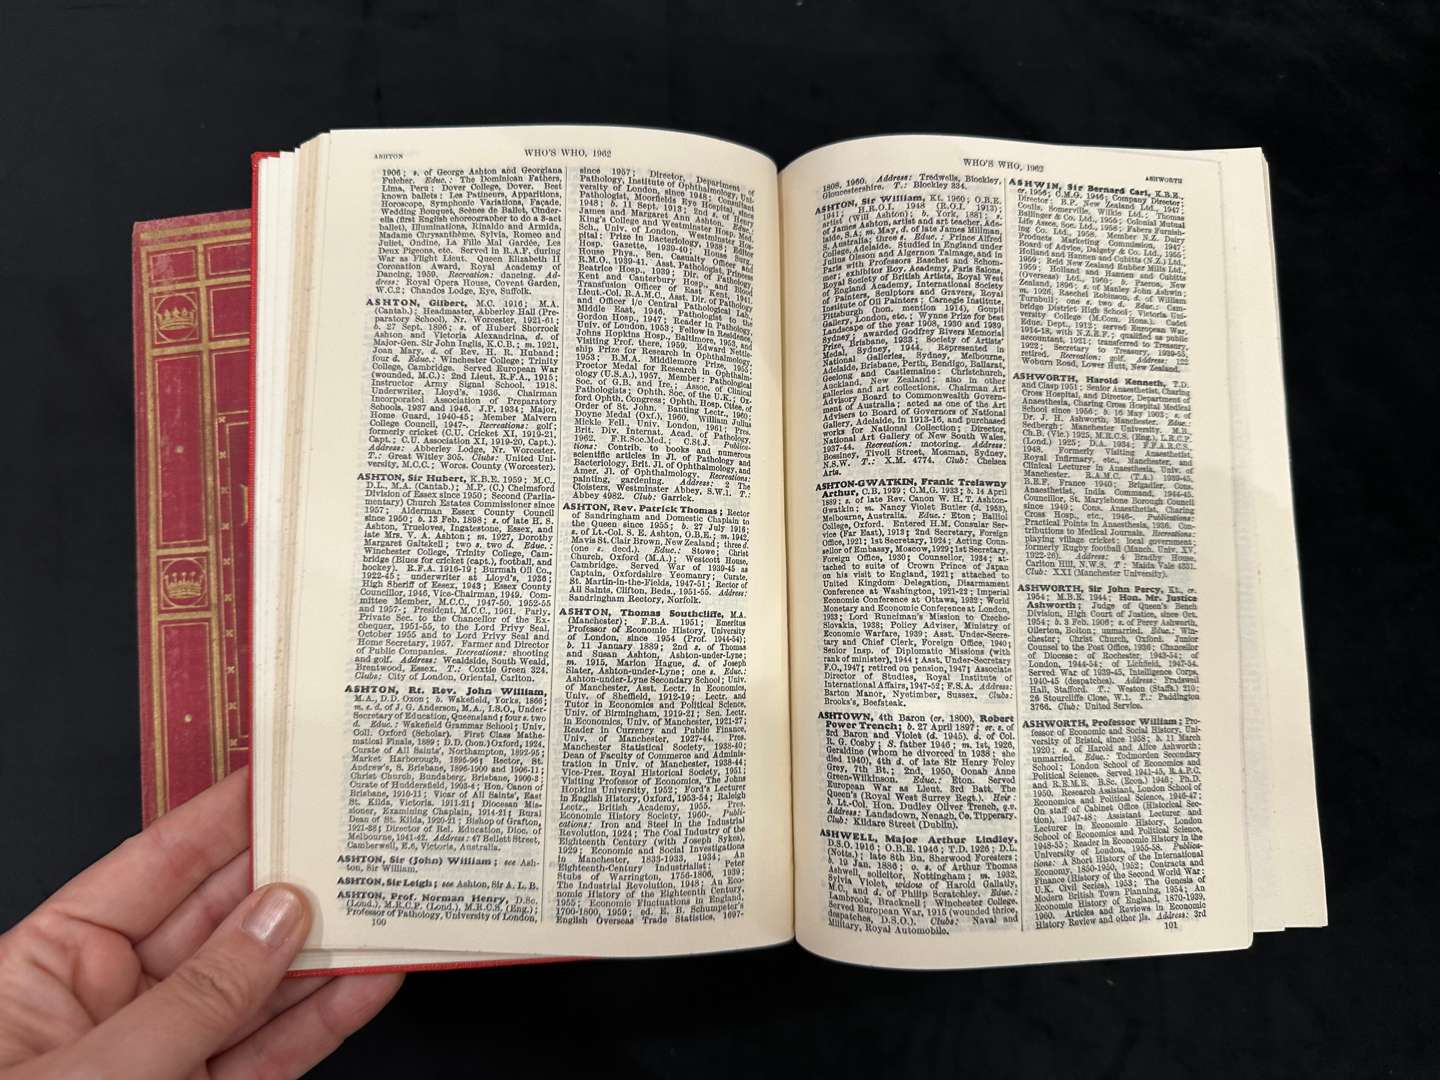 ASHTON
WHO'S WHO, 1962
1906; s. of George Ashton and Georgiana
Fulcher. Educ.: The Dominican Fathers,
Lima, Peru; Dover College, Dover. Best
known ballets: Les Patineurs, Apparitions,
Horoscope, Symphonic Variations, Façade,
Wedding Bouquet, Scènes de Ballet, Cinder-
ella (first English choreographer to do a 3-act
ballet), Illuminations, Rinaldo and Armida,
Madame Chrysanthème, Sylvia, Romeo and
Juliet, Ondine, La Fille Mal Gardée, Les
Deux Pigeons, etc. Served in R.A.F. during
War as Flight Lieut. Queen Elizabeth II
Coronation Award, Royal Academy of
Dancing, 1959. Recreation: dancing. Ad-
dress: Royal Opera House, Covent Garden,
W.C.2; Chandos Lodge, Eye, Suffolk.
ASHTON, Gilbert, M.C. 1916; M.A.
(Cantab.); Headmaster, Abberley Hall (Pre-
paratory School), Nr. Worcester, 1921-61;
b. 27 Sept. 1896; s. of Hubert Shorrock
Ashton and Victoria Alexandrina, d. of
Major-Gen. Sir John Inglis, K.C.B.; m. 1921,
Joan Mary, d. of Rev. H. R. Huband;
four d. Educ.: Winchester College; Trinity
College, Cambridge. Served European War
(wounded, M.C.): 2nd Lieut. R.F.A., 1915;
Instructor Army Signal School, 1918.
Underwriter, Lloyd's, 1936. Chairman
Incorporated Association of Preparatory
Schools, 1937 and 1946. J.P. 1934; Major,
Home Guard, 1940-45; Member Malvern
College Council, 1947-. Recreations: golf;
formerly cricket (C.U. Cricket XI, 1919-21,
Capt.; C.U. Association XI, 1919-20, Capt.).
Address: Abberley Lodge, Nr. Worcester.
T.: Great Witley 305. Clubs: United Uni-
versity, M.C.C.; Worcs. County (Worcester).
ASHTON, Sir Hubert, K.B.E. 1959; M.C.,
D.L., M.A. (Cantab.); M.P. (C.) Chelmsford
Division of Essex since 1950; Second (Parlia-
mentary) Church Estates Commissioner since
1957; Alderman Essex County Council
since 1950; b. 13 Feb. 1898; s. of late H. S.
Ashton, Trueloves, Ingatestone, Essex, and
late Mrs. V. A. Ashton; m. 1927, Dorothy
Margaret Gaitskell; two s. two d. Educ.:
Winchester College, Trinity College, Cam-
bridge (Blues for cricket (capt.), football, and
hockey). R.F.A. 1916-19; Burmah Oil Co.,
1922-45; underwriter at Lloyd's, 1936;
High Sheriff of Essex, 1943; Essex County
Councillor, 1946, Vice-Chairman, 1949. Com-
mittee Member, M.C.C., 1947-50, 1952-55
and 1957-; President, M.C.C., 1961. Parly.
Private Sec. to the Chancellor of the Ex-
chequer, 1951-55, to the Lord Privy Seal,
October 1955 and to Lord Privy Seal and
Home Secretary, 1957. Farmer and Director
of Public Companies. Recreations: shooting
and golf. Address: Wealdside, South Weald,
Brentwood, Essex. T.: Coxtie Green 324.
Clubs: City of London, Oriental, Carlton.
ASHTON, Rt. Rev. John William,
M.A., D.D. Oxon; b. Wakefield, Yorks, 1866;
m. s. d. of J. G. Anderson, M.A., I.S.O., Under-
Secretary of Education, Queensland; four s. two
d. Educ.: Wakefield Grammar School; Univ.
Coll. Oxford (Scholar). First Class Mathe-
matical Finals, 1889; D.D. (hon.) Oxford, 1924.
Curate of All Saints', Northampton, 1892-95;
Market Harborough, 1895-96; Rector, St.
Andrew's, S. Brisbane, 1896-1900 and 1906-11;
Christ Church, Bundaberg, Brisbane, 1900-3;
Curate of Huddersfield, 1903-4; Hon. Canon of
Brisbane, 1910-11; Vicar of All Saints', East
St. Kilda, Victoria, 1911-21; Diocesan Mis-
sioner, Examining Chaplain, 1914-21; Rural
Dean of St. Kilda, 1920-21; Bishop of Grafton,
1921-38; Director of Rel. Education, Dioc. of
Melbourne, 1941-42. Address: 47 Bellett Street,
Camberwell, E.6, Victoria, Australia.
ASHTON, Sir (John) William; see Ash-
ton, Sir William.
ASHTON, Sir Leigh; see Ashton, Sir A. L. B.
ASHTON, Prof. Norman Henry, D.Sc.
(Lond.), M.R.C.P. (Lond.), M.R.C.S. (Eng.);
Professor of Pathology, University of London,
100
since 1957; Director, Department of
Pathology, Institute of Ophthalmology, Uni-
versity of London, since 1948; Consultant
Pathologist, Moorfields Eye Hospital, since
1948; b. 11 Sept. 1913; 2nd s. of Henry
James and Margaret Ann Ashton. Educ.:
King's College and Westminster Hosp. Med.
Sch., Univ. of London. Westminster Hos-
pital: Prize in Bacteriology, 1938; Editor
Hosp. Gazette, 1939-40; House Surg.,
House Phys., Sen. Casualty Officer and
R.M.O., 1939-41. Asst. Pathologist, Princess
Beatrice Hosp., 1939; Dir. of Pathology,
Kent and Canterbury Hosp., and Blood
Transfusion Officer of East Kent, 1941.
Lieut.-Col. R.A.M.C., Asst. Dir. of Pathology
and Officer i/c Central Pathological Lab.,
Middle East, 1946. Pathologist to the
Gordon Hosp., 1947; Reader in Pathology,
Univ. of London, 1953; Fellow in Residence,
Johns Hopkins Hosp., Baltimore, 1953, and
Visiting Prof. there, 1959. Edward Nettle-
ship Prize for Research in Ophthalmology,
1953; B.M.A. Middlemore Prize, 1955;
Proctor Medal for Research in Ophthalm-
ology (U.S.A.), 1957. Member: Pathological
Soc. of G.B. and Ire.; Assoc. of Clinical
Pathologists; Ophth. Soc. of the U.K.; Ox-
ford Ophth. Congress; Ophth. Hosp. Cttee. of
Order of St. John. Banting Lectr., 1960;
Doyne Medal (Oxf.), 1960, William Julius
Mickle Fell., Univ. London, 1961; Pres.
Brit. Div. Internat. Acad. of Pathology,
1962. F.R.Soc.Med.; C.St.J. Publica-
tions: Contrib. to books and numerous
scientific articles in Jl. of Pathology and
Bacteriology, Brit. Jl. of Ophthalmology, and
Amer. Jl. of Ophthalmology. Recreations:
painting, gardening. Address: 2 The
Cloisters, Westminster Abbey, S.W.1. T.:
Abbey 4982. Club: Garrick.
ASHTON, Rev. Patrick Thomas; Rector
of Sandringham and Domestic Chaplain to
the Queen since 1955; b. 27 July 1916;
s. of Lt.-Col. S. E. Ashton, O.B.E.; m. 1942,
Mavis St. Clair Brown, New Zealand; three d.
(one s. decd.). Educ.: Stowe; Christ
Church, Oxford (M.A.); Westcott House,
Cambridge. Served War of 1939-45 as
Captain, Oxfordshire Yeomanry; Curate,
St. Martin-in-the-Fields, 1947-51; Rector of
All Saints, Clifton, Beds., 1951-55. Address:
Sandringham Rectory, Norfolk.
ASHTON, Thomas Southcliffe, M.A.
(Manchester); F.B.A. 1951; Emeritus
Professor of Economic History, University
of London, since 1954 (Prof. 1944-54);
b. 11 January 1889; 2nd s. of Thomas
and Susan Ashton, Ashton-under-Lyne;
m. 1915, Marion Hague, d. of Joseph
Slater, Ashton-under-Lyne; one s. Educ.:
Ashton-under-Lyne Secondary School; Univ.
of Manchester. Asst. Lectr. in Economics,
Univ. of Sheffield, 1912-19; Lectr. and
Tutor in Economics and Political Science,
Univ. of Birmingham, 1919-21; Sen. Lectr.
in Economics, Univ. of Manchester, 1921-27;
Reader in Currency and Public Finance,
Univ. of Manchester, 1927-44. Pres.
Manchester Statistical Society, 1938-40;
Dean of Faculty of Commerce and Adminis-
tration in Univ. of Manchester, 1938-44;
Vice-Pres. Royal Historical Society, 1951;
Visiting Professor of Economics, The Johns
Hopkins University, 1952; Ford's Lecturer
in English History, Oxford, 1953-54; Raleigh
Lectr., British Academy, 1955. Pres.
Economic History Society, 1960-. Publi-
cations: Iron and Steel in the Industrial
Revolution, 1924; The Coal Industry of the
Eighteenth Century (with Joseph Sykes),
1929; Economic and Social Investigations
in Manchester, 1833-1933, 1934; An
Eighteenth-Century Industrialist: Peter
Stubs of Warrington, 1756-1806, 1939;
The Industrial Revolution, 1948; An Eco-
nomic History of the Eighteenth Century,
1955; Economic Fluctuations in England,
1700-1800, 1959; ed. E. B. Schumpeter's
English Overseas Trade Statistics, 1697-
WHO'S WHO, 1962
ASHWORTH
1808, 1960. Address: Tredwells, Blockley,
Gloucestershire. T.: Blockley 334.
ASHTON, Sir William, Kt. 1960; O.B.E.
1941; H.R.O.I. 1948 (R.O.I. 1913);
artist (Will Ashton); b. York, 1881; s.
of James Ashton, artist and art teacher, Ade-
laide, S.A.; m. May, d. of late James Millman,
S. Australia; three s. Educ.: Prince Alfred
College, Adelaide. Studied in England under
Julius Olsson and Algernon Talmage, and in
Paris with Professors Baschet and Schom-
mer; exhibitor Roy. Academy, Paris Salons,
Royal Society of British Artists, Royal West
of England Academy, International Society
of Painters, Sculptors and Gravers, Royal
Institute of Oil Painters; Carnegie Institute,
Pittsburgh (hon. mention 1914), Goupil
Gallery, London, etc.; Wynne Prize for best
Landscape of the year 1908, 1930 and 1939,
Sydney; awarded Godfrey Rivers Memorial
Prize, Brisbane, 1933; Society of Artists'
Medal, Sydney, 1944. Represented in
National Galleries, Sydney, Melbourne,
Adelaide, Brisbane, Perth, Bendigo, Ballarat,
Geelong and Castlemaine; Christchurch,
Auckland, New Zealand; also in other
galleries and art collections. Chairman Art
Advisory Board to Commonwealth Govern-
ment of Australia; acted as one of the Art
Advisers to Board of Governors of National
Gallery, Adelaide, in 1913-16, and purchased
works for National Collection; Director,
National Art Gallery of New South Wales,
1937-44. Recreation: motoring. Address:
Bossiney, Tivoli Street, Mosman, Sydney,
N.S.W. T.: X.M. 4774. Club: Chelsea
Arts.
ASHTON-GWATKIN, Frank Trelawny
Arthur, C.B. 1939; C.M.G. 1933; b. 14 April
1889; s. of late Rev. Canon W. H. T. Ashton-
Gwatkin; m. Nancy Violet Butler (d. 1953),
Melbourne, Australia. Educ.: Eton; Balliol
College, Oxford. Entered H.M. Consular Ser-
vice (Far East), 1913; 2nd Secretary, Foreign
Office, 1921; 1st Secretary, 1924; Acting Coun-
sellor of Embassy, Moscow, 1929; 1st Secretary,
Foreign Office, 1930; Counsellor, 1934; at-
tached to suite of Crown Prince of Japan
on his visit to England, 1921; attached to
United Kingdom Delegation, Disarmament
Conference at Washington, 1921-22; Imperial
Economic Conference at Ottawa, 1932; World
Monetary and Economic Conference at London,
1933; Lord Runciman's Mission to Czecho-
Slovakia, 1938; Policy Adviser, Ministry of
Economic Warfare, 1939; Asst. Under-Secre-
tary and Chief Clerk, Foreign Office, 1940;
Senior Insp. of Diplomatic Missions (with
rank of minister), 1944; Asst. Under-Secretary
F.O., 1947; retired on pension, 1947; Associate
Director of Studies, Royal Institute of
International Affairs, 1947-52; F.S.A. Address:
Barton Manor, Nyetimber, Sussex. Clubs:
Brooks's, Beefsteak.
ASHTOWN, 4th Baron (cr. 1800), Robert
Power Trench; b. 27 April 1897; er. s. of
3rd Baron and Violet (d. 1945), d. of Col.
R. G. Cosby; S. father 1946; m. 1st, 1926,
Geraldine (whom he divorced in 1938; she
died 1940), 4th d. of late Sir Henry Foley
Grey, 7th Bt.; 2nd, 1950, Oonah Anne
Green-Wilkinson. Educ.: Eton. Served
European War as Lieut. 3rd Batt. The
Queen's (Royal West Surrey Regt.). Heir:
b. Lt.-Col. Hon. Dudley Oliver Trench, q.v.
Address: Landsdown, Nenagh, Co. Tipperary.
Club: Kildare Street (Dublin).
ASHWELL, Major Arthur Lindley,
D.S.O. 1916; O.B.E. 1946; T.D. 1926; D.L.
(Notts.); late 8th Bn. Sherwood Foresters;
b. 19 Jan. 1886; o. s. of Arthur Thomas
Ashwell, solicitor, Nottingham; m. 1932,
Sylvia Violet, widow of Harold Gallatly,
M.C., and d. of Philip Scratchley. Educ.:
Lambrook, Bracknell; Winchester College.
Served European War, 1915 (wounded thrice,
despatches, D.S.O.). Clubs: Naval and
Military, Royal Automobile.
ASHWIN, Sir Bernard Carl, K.B.E.,
cr. 1956; C.M.G. 1946; Company Director;
Director: B.P. New Zealand Ltd., 1947;
Coulls, Somerville, Wilkie Ltd.; Thomas
Ballinger & Co. Ltd., 1955; Colonial Mutual
Life Assce. Soc. Ltd., 1956; Fabers Furnish-
ing Co. Ltd., 1958. Member N.Z. Dairy
Products Marketing Commission, 1947;
Board of Advice, Dalgety & Co. Ltd., 1955;
Holland and Hannen and Cubitts (N.Z.) Ltd.,
1959; Reid New Zealand Rubber Mills Ltd.,
1959; Holland and Hannen and Cubitts
(Overseas) Ltd., 1960; b. Paeroa, New
Zealand, 1896; s. of Manley John Ashwin;
m. 1926, Raechel Robinson, d. of William
Turnbull; one s. two d. Educ.: Cam-
bridge District High School; Victoria Uni-
versity College (M.Com. Hons.). Cadet
Educ. Dept., 1912; served European War,
1914-18, with N.Z.E.F.; qualified as public
accountant, 1921; transferred to Treasury,
1922; Secretary to Treasury, 1939-55,
retired. Recreation: golf. Address: 122
Woburn Road, Lower Hutt, New Zealand.
ASHWORTH, Harold Kenneth, T.D.
and Clasp 1951; Senior Anaesthetist, Charing
Cross Hospital, and Director, Department of
Anaesthesia, Charing Cross Hospital Medical
School since 1956; b. 16 May 1903; s. of
Dr. J. H. Ashworth, Manchester. Educ.:
Sedbergh; Manchester University. M.B.,
Ch.B. (Vic.) 1925, M.R.C.S. (Eng.), L.R.C.P.
(Lond.) 1925; D.A. 1934; F.F.A.R.C.S.
1948. Formerly Visiting Anaesthetist,
Royal Infirmary, etc., Manchester, and
Clinical Lecturer in Anaesthesia, Univ. of
Manchester. R.A.M.C. (T.A.) 1939-45,
B.E.F. France 1940; Brigadier, Cons.
Anaesthetist, India Command, 1944-45.
Councillor, St. Marylebone Borough Council
since 1949; Cons. Anaesthetist, Charing
Cross Hosp., etc., 1946-. Publications:
Practical Points in Anaesthesia, 1936. Con-
tributions to Medical Journals. Recreations:
playing village cricket; local government;
formerly Rugby football (Manch. Univ. XV,
1922-26). Address: 4 Bradby House,
Carlton Hill, N.W.8. T: Maida Vale 4331.
Club: XXI (Manchester University).
ASHWORTH, Sir John Percy, Kt., cr.
1954; M.B.E. 1944; Hon. Mr. Justice
Ashworth; Judge of Queen's Bench
Division, High Court of Justice, since Oct.
1954; b. 3 Feb. 1906; s. of Percy Ashworth,
Ollerton, Bolton; unmarried. Educ.: Win-
chester; Christ Church, Oxford. Junior
Counsel to the Post Office, 1936; Chancellor
of Diocese: of Rochester, 1943-54; of
London, 1944-54; of Lichfield, 1947-54.
Served War of 1939-45, Intelligence Corps,
1940-45 (despatches). Address: Pradswell
Hall, Stafford. T.: Weston (Staffs.) 210;
26 Stourcliffe Close, W.1. T.: Paddington
3766. Club: United Service.
ASHWORTH, Professor William; Pro-
fessor of Economic and Social History, Uni-
versity of Bristol, since 1958; b. 11 March
1920; s. of Harold and Alice Ashworth;
unmarried. Educ.: Todmorden Secondary
School; London School of Economics and
Political Science. Served 1941-45, R.A.P.C.
and R.E.M.E. B.Sc. (Econ.) 1946; Ph.D.
1950. Research Assistant, London School of
Economics and Political Science, 1946-47;
On staff of Cabinet Office (Historical Sec-
tion), 1947-48; Assistant Lecturer and
Lecturer in Economic History, London
School of Economics and Political Science,
1948-55; Reader in Economic History in the
University of London, 1955-58. Publica-
tions: A Short History of the International
Economy, 1850-1950, 1952; Contracts and
Finance (History of the Second World War:
U.K. Civil Series), 1953; The Genesis of
Modern British Town Planning, 1954; An
Economic History of England, 1870-1939,
1960. Articles and Reviews in Economic
History Review and other jls. Address: 3rd
101